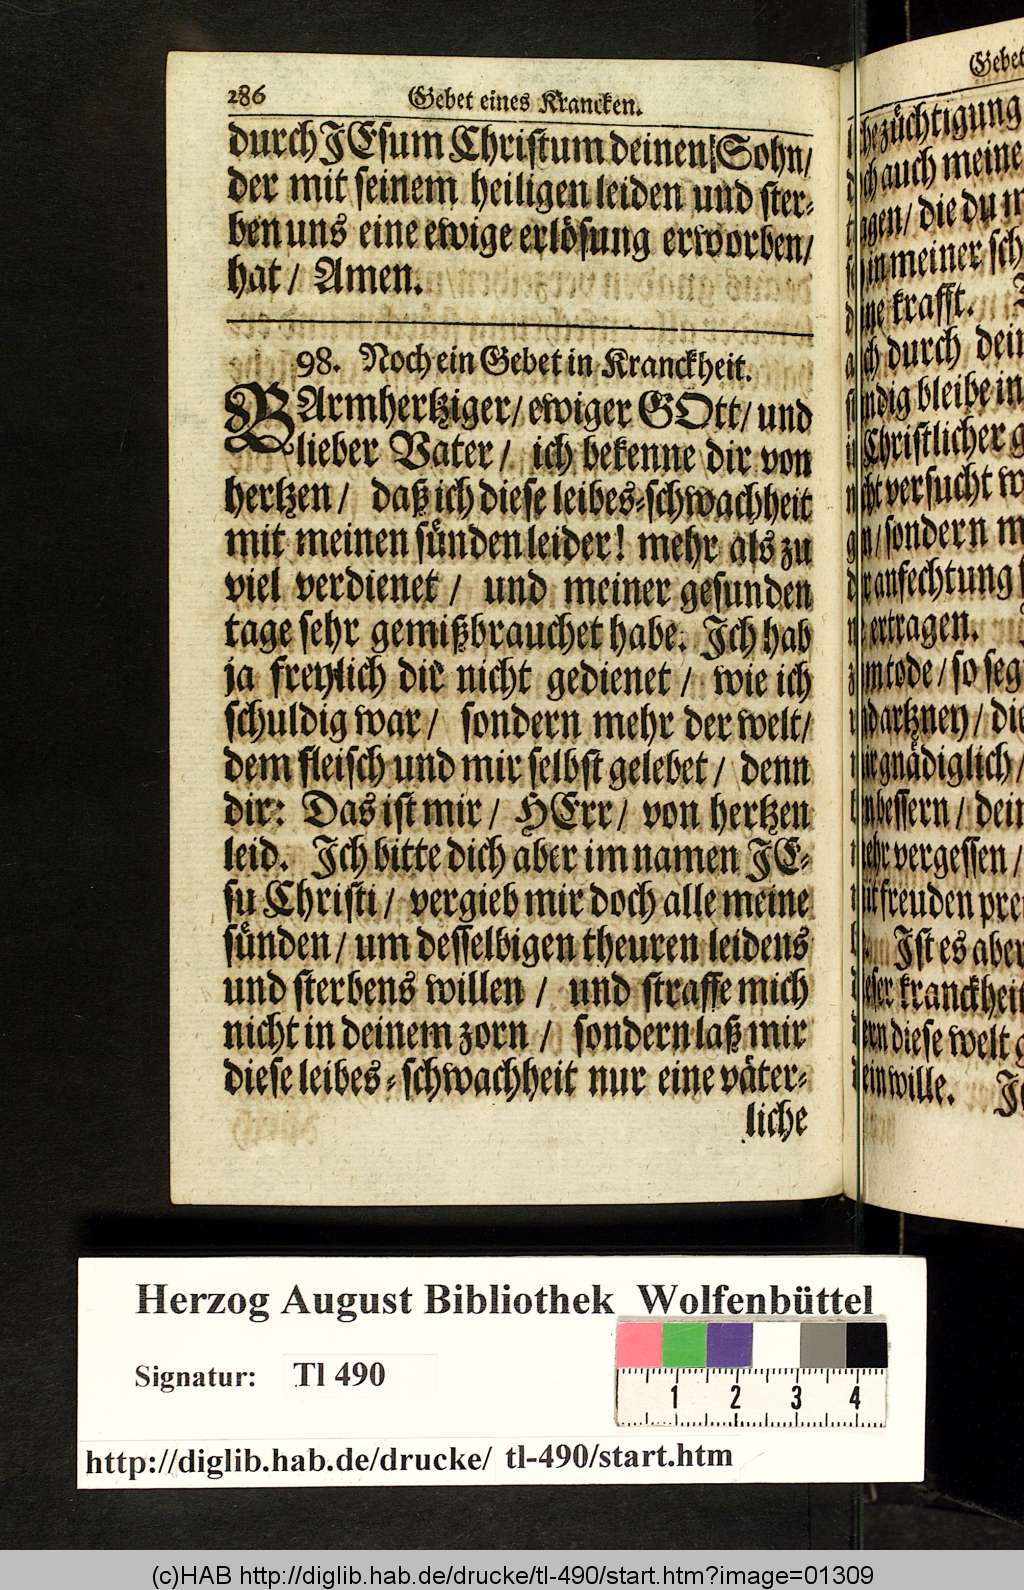 286 Gebet eines Krancken.
durch JEsum Christum deinen Sohn/
der mit seinem heiligen leiden und ster-
ben uns eine ewige erlösung erworben/
hat/ Amen.
98. Noch ein Gebet in Kranckheit.
BArmhertziger/ ewiger GOtt/ und
lieber Vater/ ich bekenne dir von
hertzen/ daß ich diese leibes-schwachheit
mit meinen sünden leider! mehr als zu
viel verdienet/ und meiner gesunden
tage sehr gemißbrauchet habe. Ich hab
ja freylich dir nicht gedienet/ wie ich
schuldig war/ sondern mehr der welt/
dem fleisch und mir selbst gelebet/ denn
dir: Das ist mir/ HErr/ von hertzen
leid. Ich bitte dich aber im namen JE-
su Christi/ vergieb mir doch alle meine
sünden/ um desselbigen theuren leidens
und sterbens willen/ und straffe mich
nicht in deinem zorn/ sondern laß mir
diese leibes-schwachheit nur eine väter-
liche
Gebet
bezüchtigung
auch meine
die du
in meiner
krafft.
durch
bleibe in
Christlicher
versucht
sondern
anfechtung
ertragen.
tode/ so
artzney/
gnädiglich/
bessern/
vergessen/
freuden
Ist es aber
kranckheit
diese welt
wille.
Herzog August Bibliothek Wolfenbüttel
Signatur: Tl 490
1 2 3 4
http://diglib.hab.de/drucke/ tl-490/start.htm
(c)HAB http://diglib.hab.de/drucke/tl-490/start.htm?image=01309